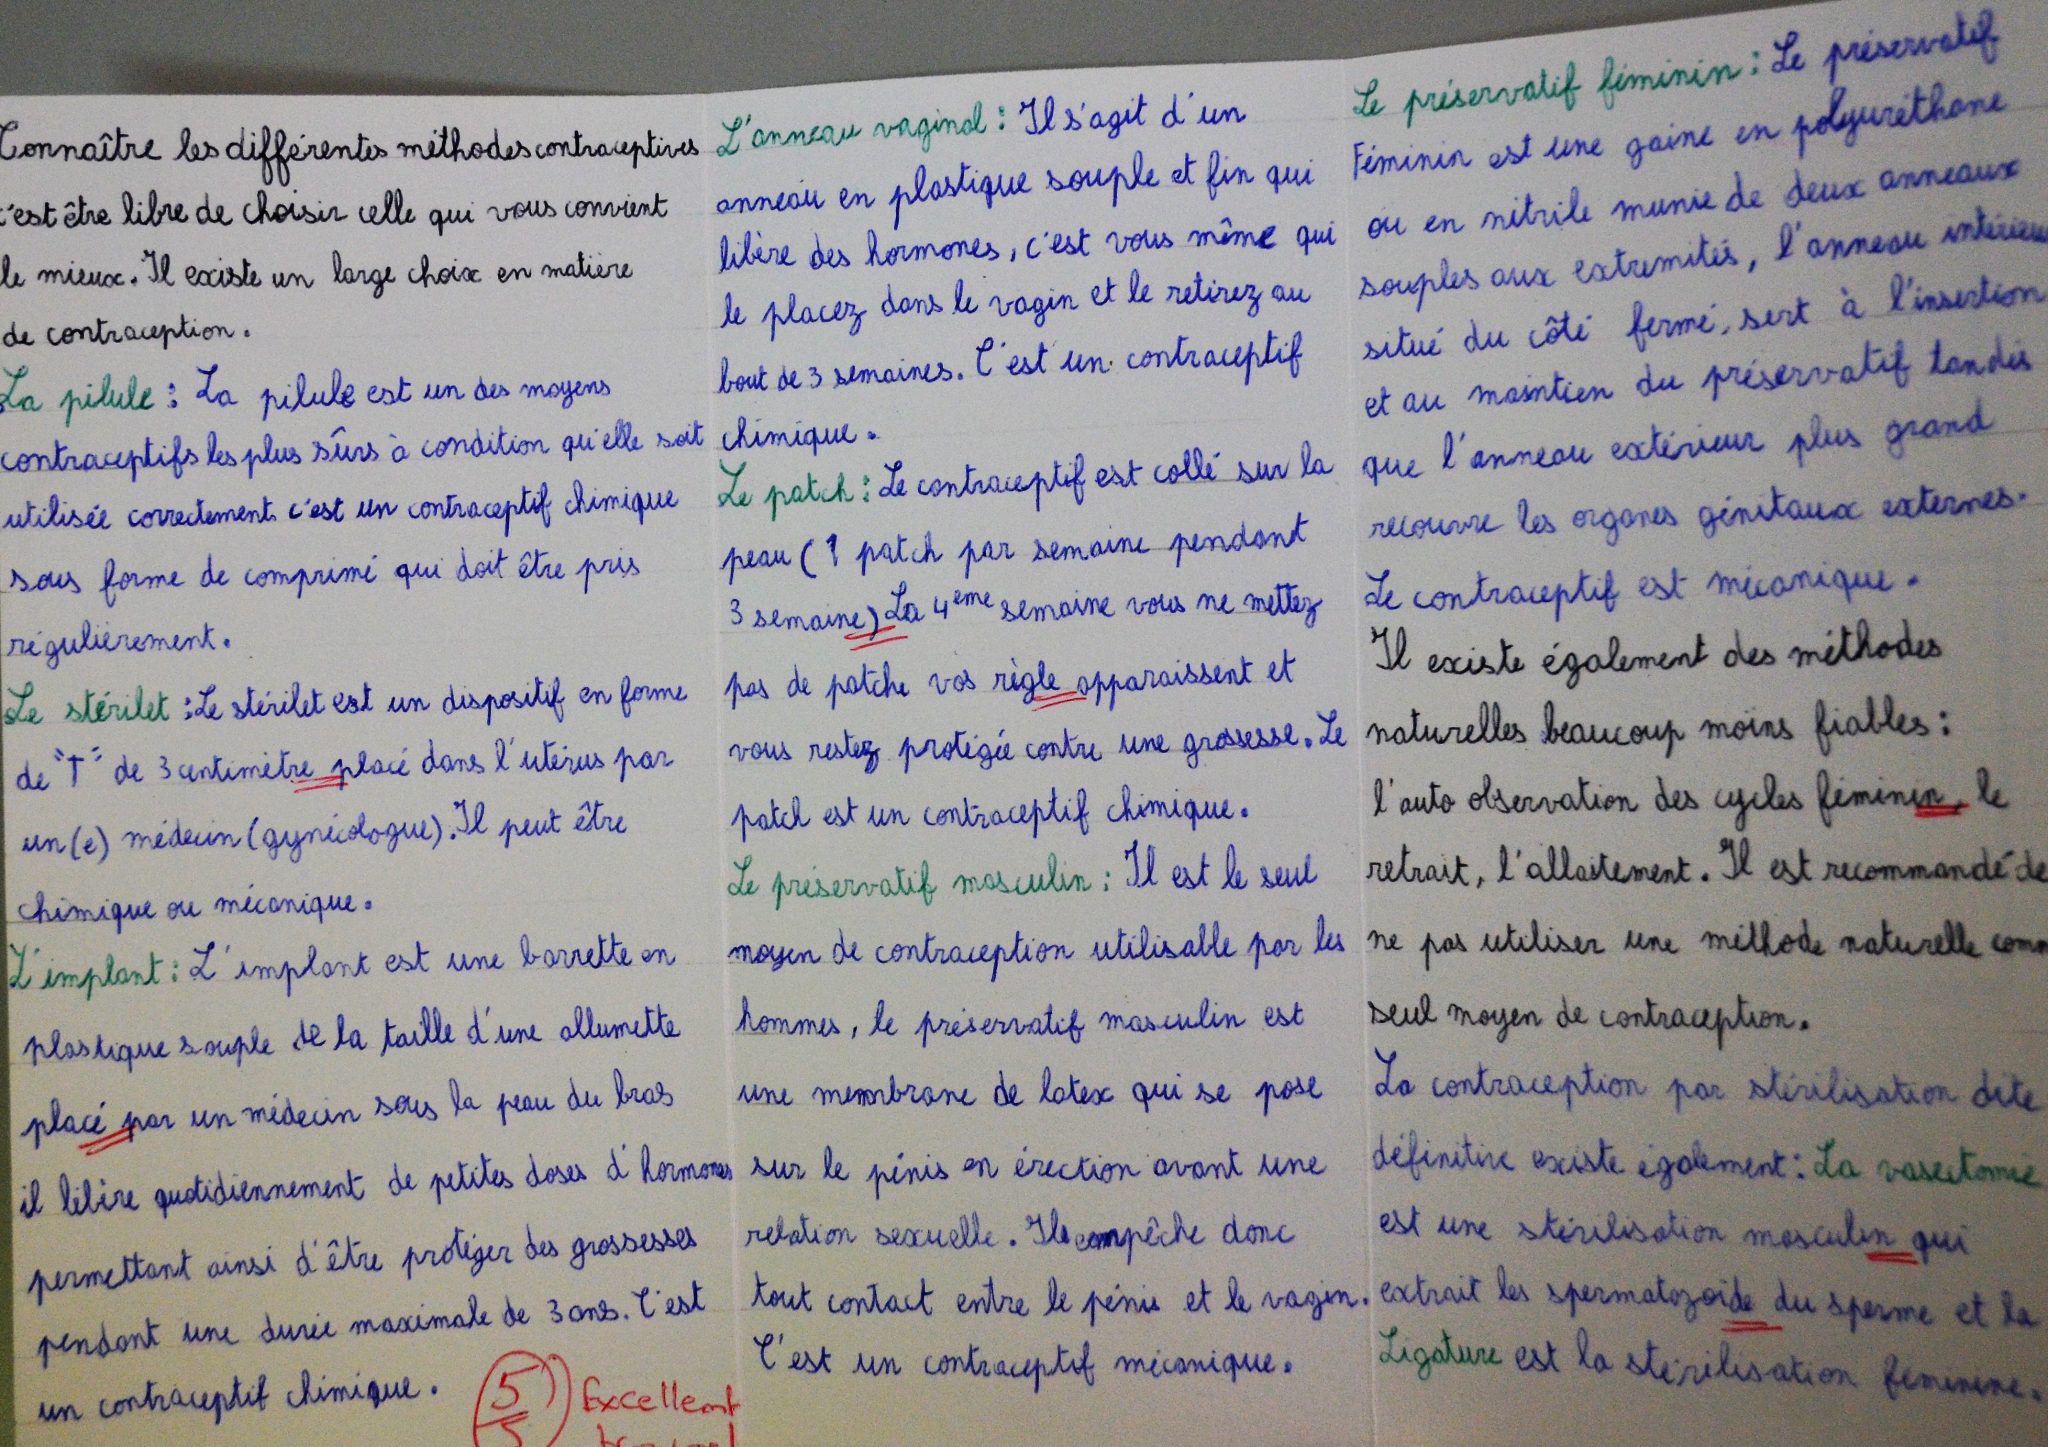 Connaître les différentes méthodes contraceptives
c'est être libre de choisir celle qui vous convient
le mieux. Il existe un large choix en matière
de contraception.
La pilule : La pilule est un des moyens
contraceptifs les plus sûrs à condition qu'elle soit
utilisée correctement c'est un contraceptif chimique
sous forme de comprimé qui doit être pris
régulièrement.
Le stérilet : Le stérilet est un dispositif en forme
de "T" de 3 centimètre placé dans l'utérus par
un(e) médecin (gynécologue). Il peut être
chimique ou mécanique.
L'implant : L'implant est une barrette en
plastique souple de la taille d'une allumette
placé par un médecin sous la peau du bras
il libère quotidiennement de petites doses d'hormones
permettant ainsi d'être protéger des grossesses
pendant une durée maximale de 3 ans. C'est
un contraceptif chimique.
5/5 Excellent
L'anneau vaginal : Il s'agit d'un
anneau en plastique souple et fin qui
libère des hormones, c'est vous même qui
le placez dans le vagin et le retirez au
bout de 3 semaines. C'est un contraceptif
chimique.
Le patch : Le contraceptif est collé sur la
peau (1 patch par semaine pendant
3 semaine) La 4eme semaine vous ne mettez
pas de patche vos règle apparaissent et
vous restez protégée contre une grossesse. Le
patch est un contraceptif chimique.
Le préservatif masculin : Il est le seul
moyen de contraception utilisable par les
hommes, le préservatif masculin est
une membrane de latex qui se pose
sur le pénis en érection avant une
relation sexuelle. Il empêche donc
tout contact entre le pénis et le vagin.
C'est un contraceptif mécanique.
Le préservatif féminin : Le préservatif
Féminin est une gaine en polyuréthane
ou en nitrile munie de deux anneaux
souples aux extremités, l'anneau intérieur
situé du côté fermé, sert à l'insertion
et au maintien du préservatif tandis
que l'anneau extérieur plus grand
recouvre les organes génitaux externes.
Le contraceptif est mécanique.
Il existe également des méthodes
naturelles beaucoup moins fiables :
l'auto observation des cycles féminin, le
retrait, l'allaitement. Il est recommandé de
ne pas utiliser une méthode naturelle comm
seul moyen de contraception.
La contraception par stérilisation dite
définitive existe également : La vasectomie
est une stérilisation masculin qui
extrait les spermatozoïde du sperme et la
Ligature est la stérilisation féminine.